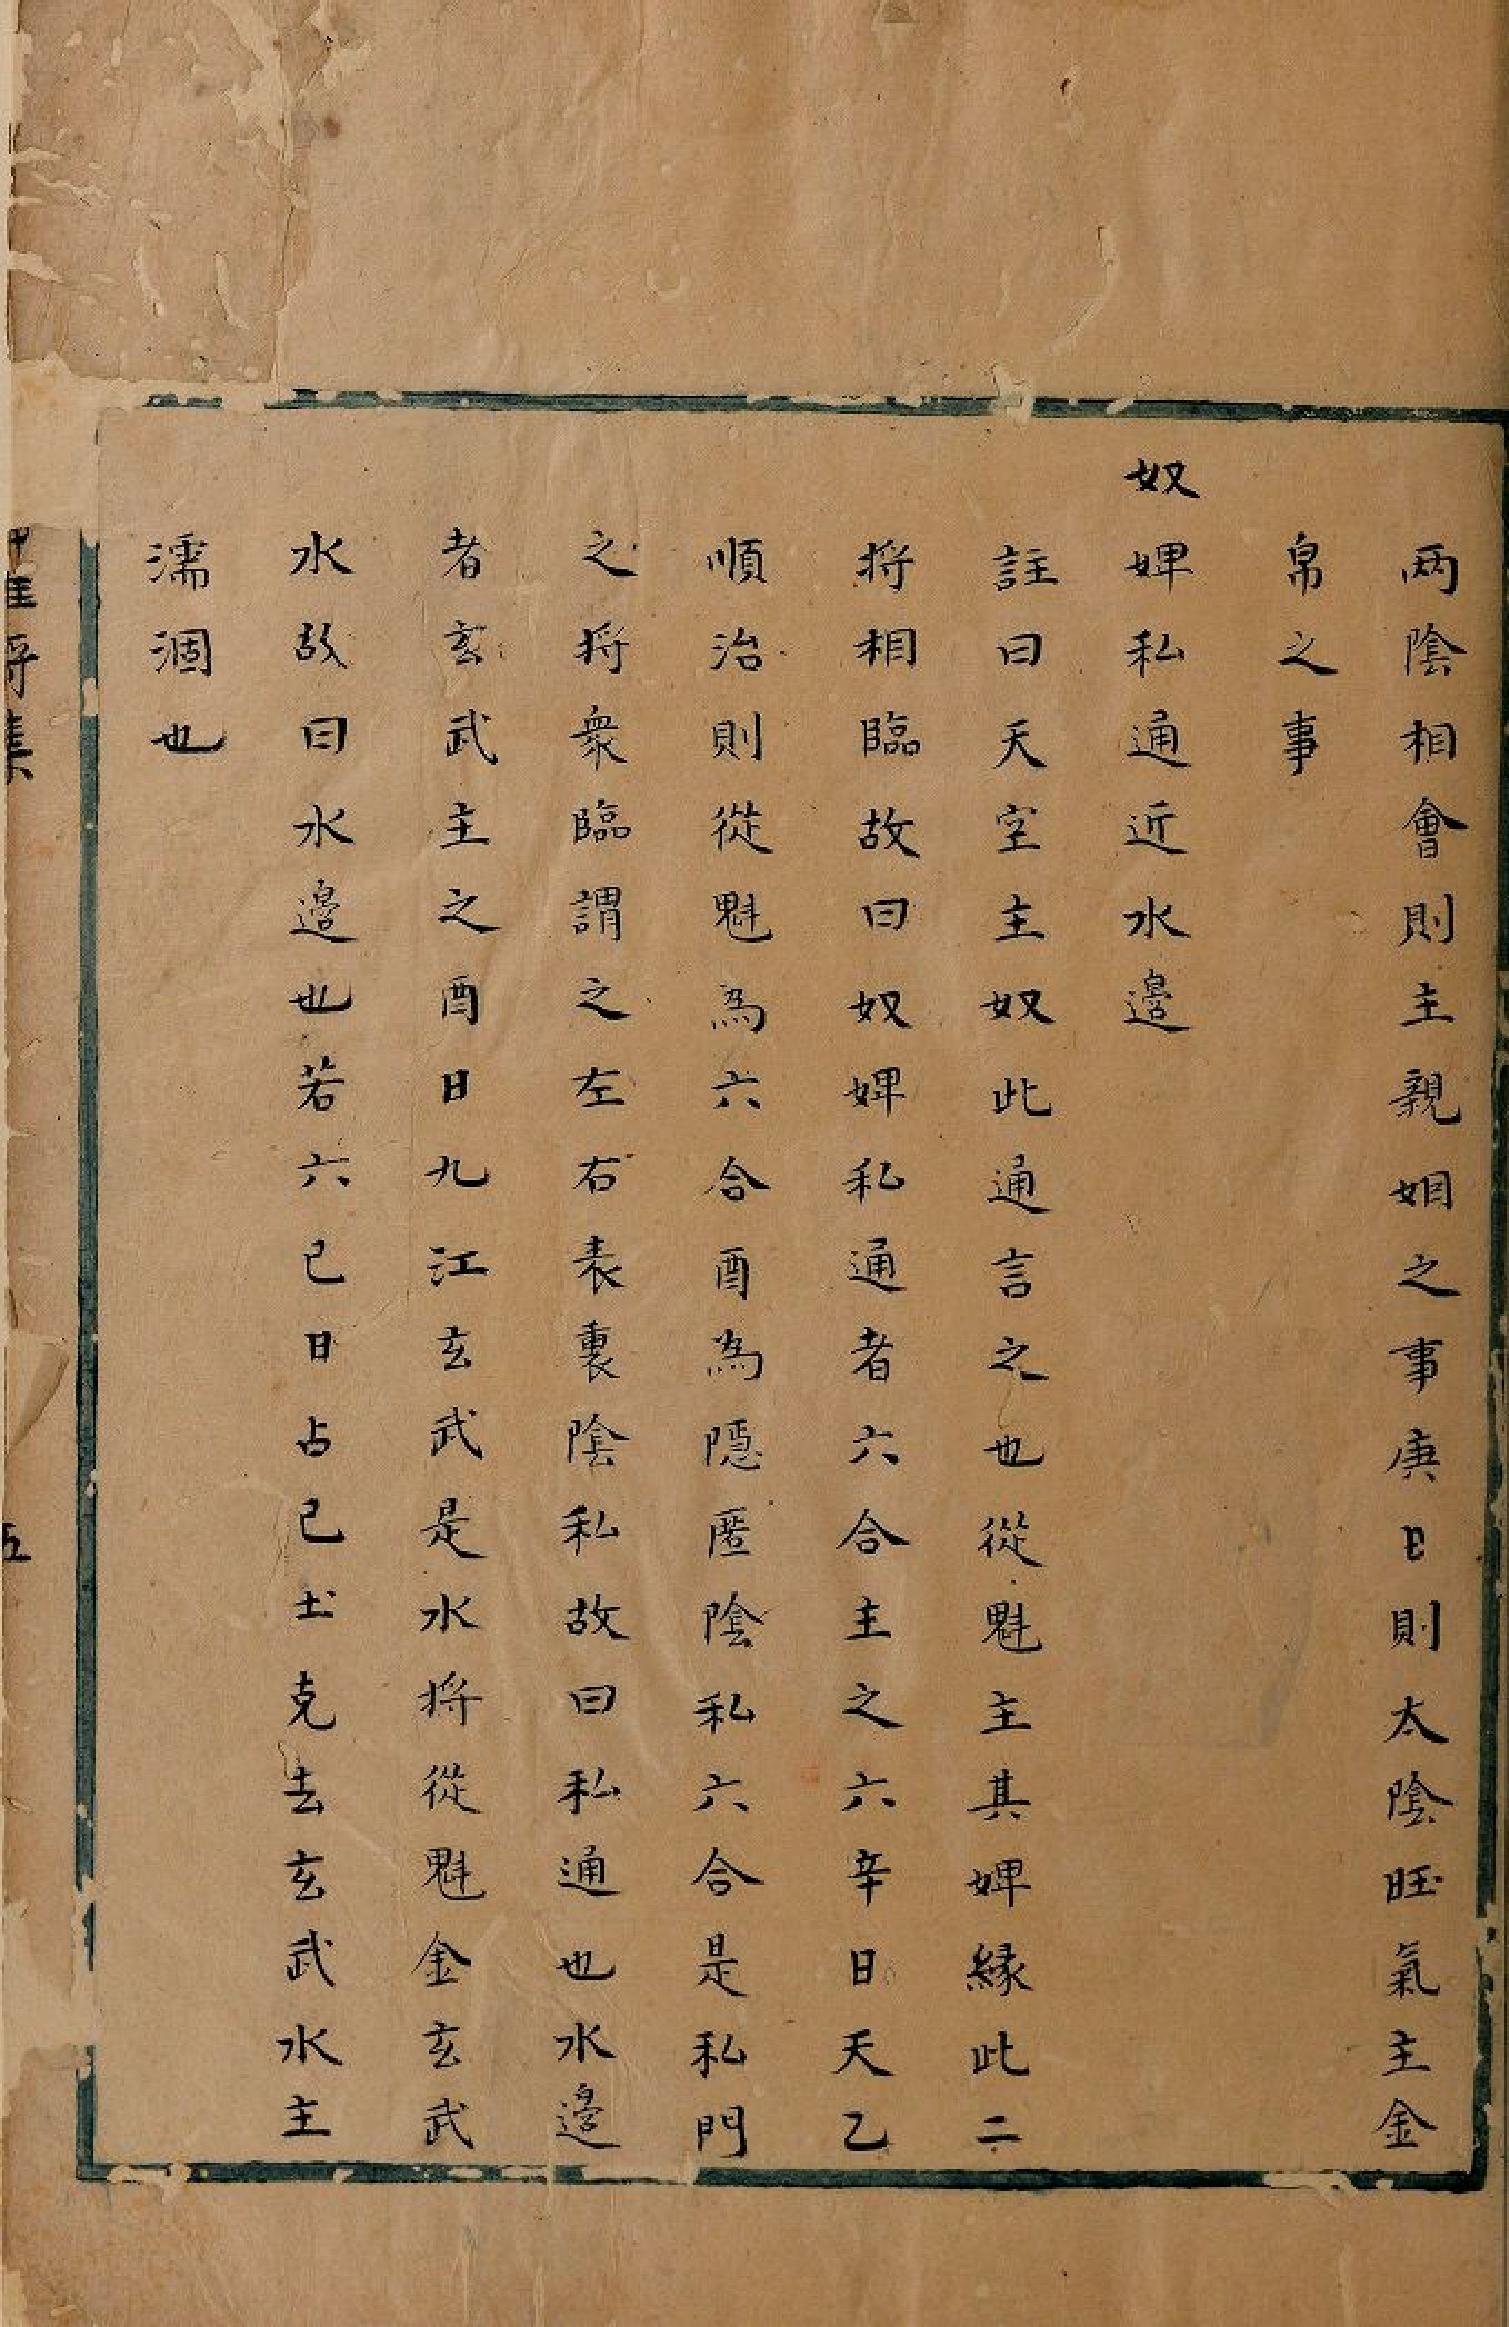 兩陰相會則主親姻之事庚日則太陰旺氣主金
帛之事
奴婢私通近水邊
註曰天空主奴此通言之也從魁主其婢緣此二
將相臨故曰奴婢私通者六合主之六辛日天乙
順治則從魁為六合酉為隱匿陰私六合是私門
之將衆臨謂之左右表裏陰私故曰私通也水邊
者玄武主之酉日九江玄武是水將從魁金玄武
水故曰水邊也若六己日占己土克去玄武水主
濡涸也
將集
五